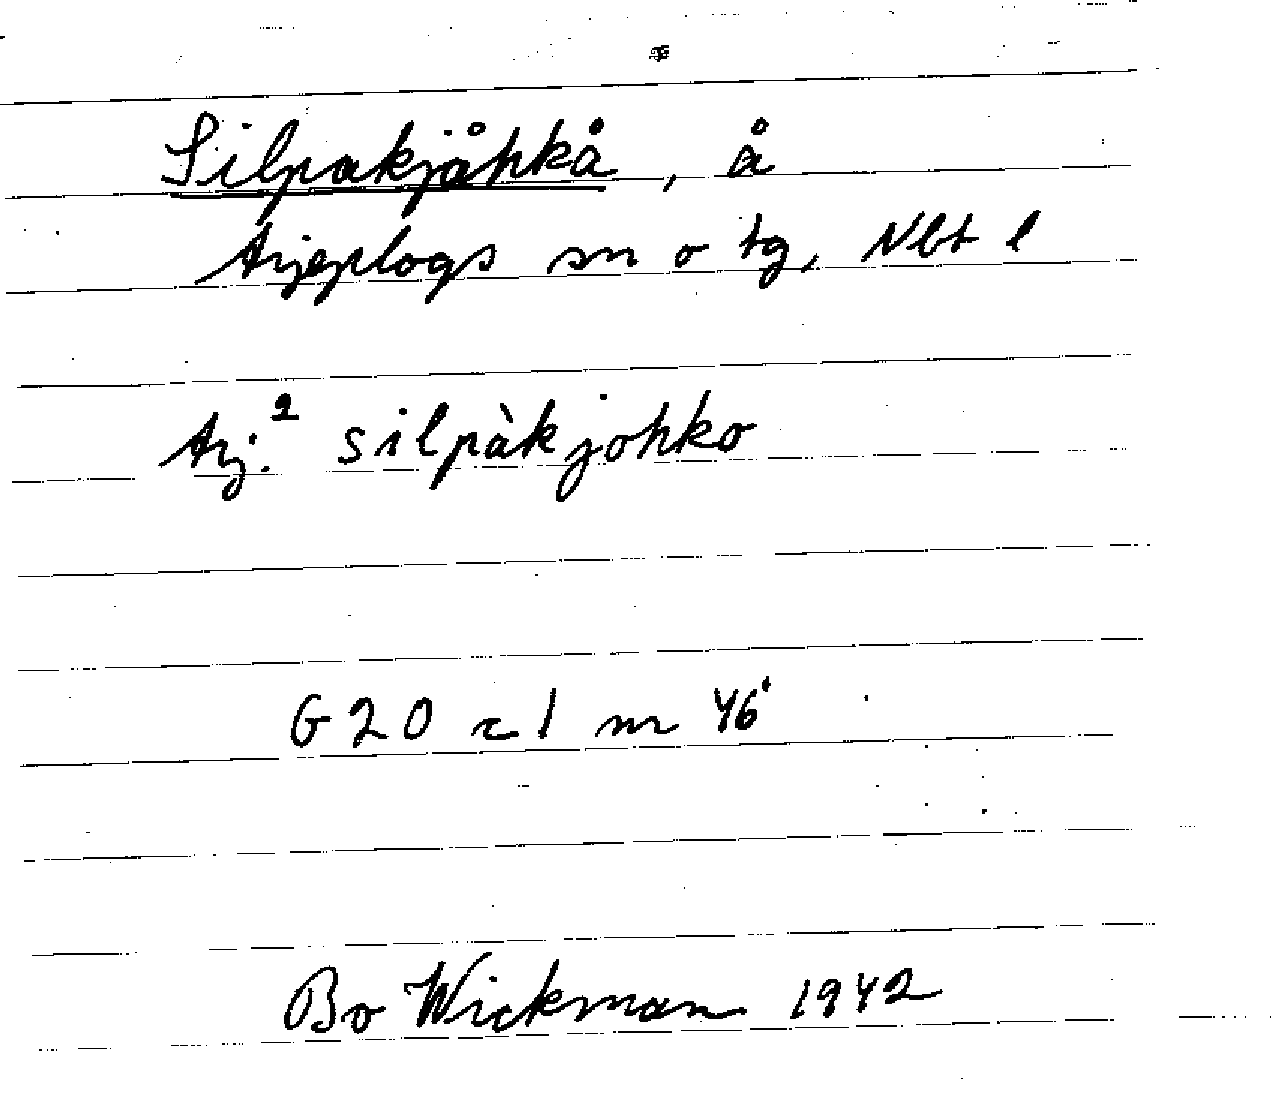 Silpakjåhkå, å
Arjeplogs sn o tg, Nbt l
Arj.² silpàkjohko
G 20 r l m 46'
Bo Wickman 1942